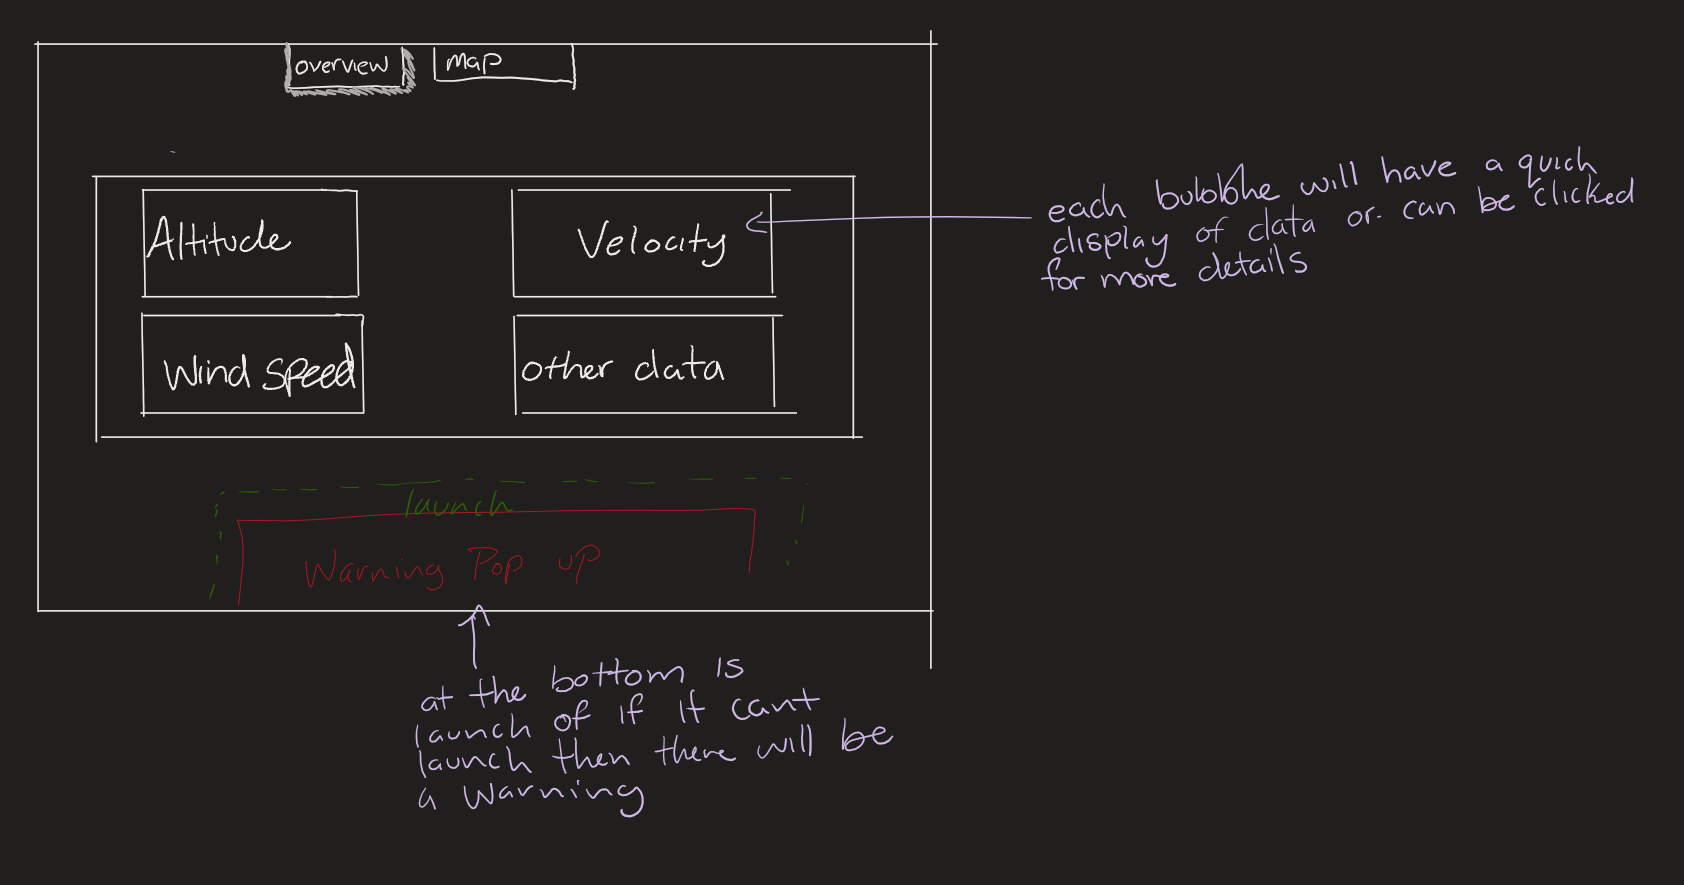 overview
map
Altitude
Velocity
Wind speed
other data
each bubble will have a quick
display of data or can be clicked
for more details
launch
Warning Pop up
at the bottom is
launch of if it cant
launch then there will be
a warning